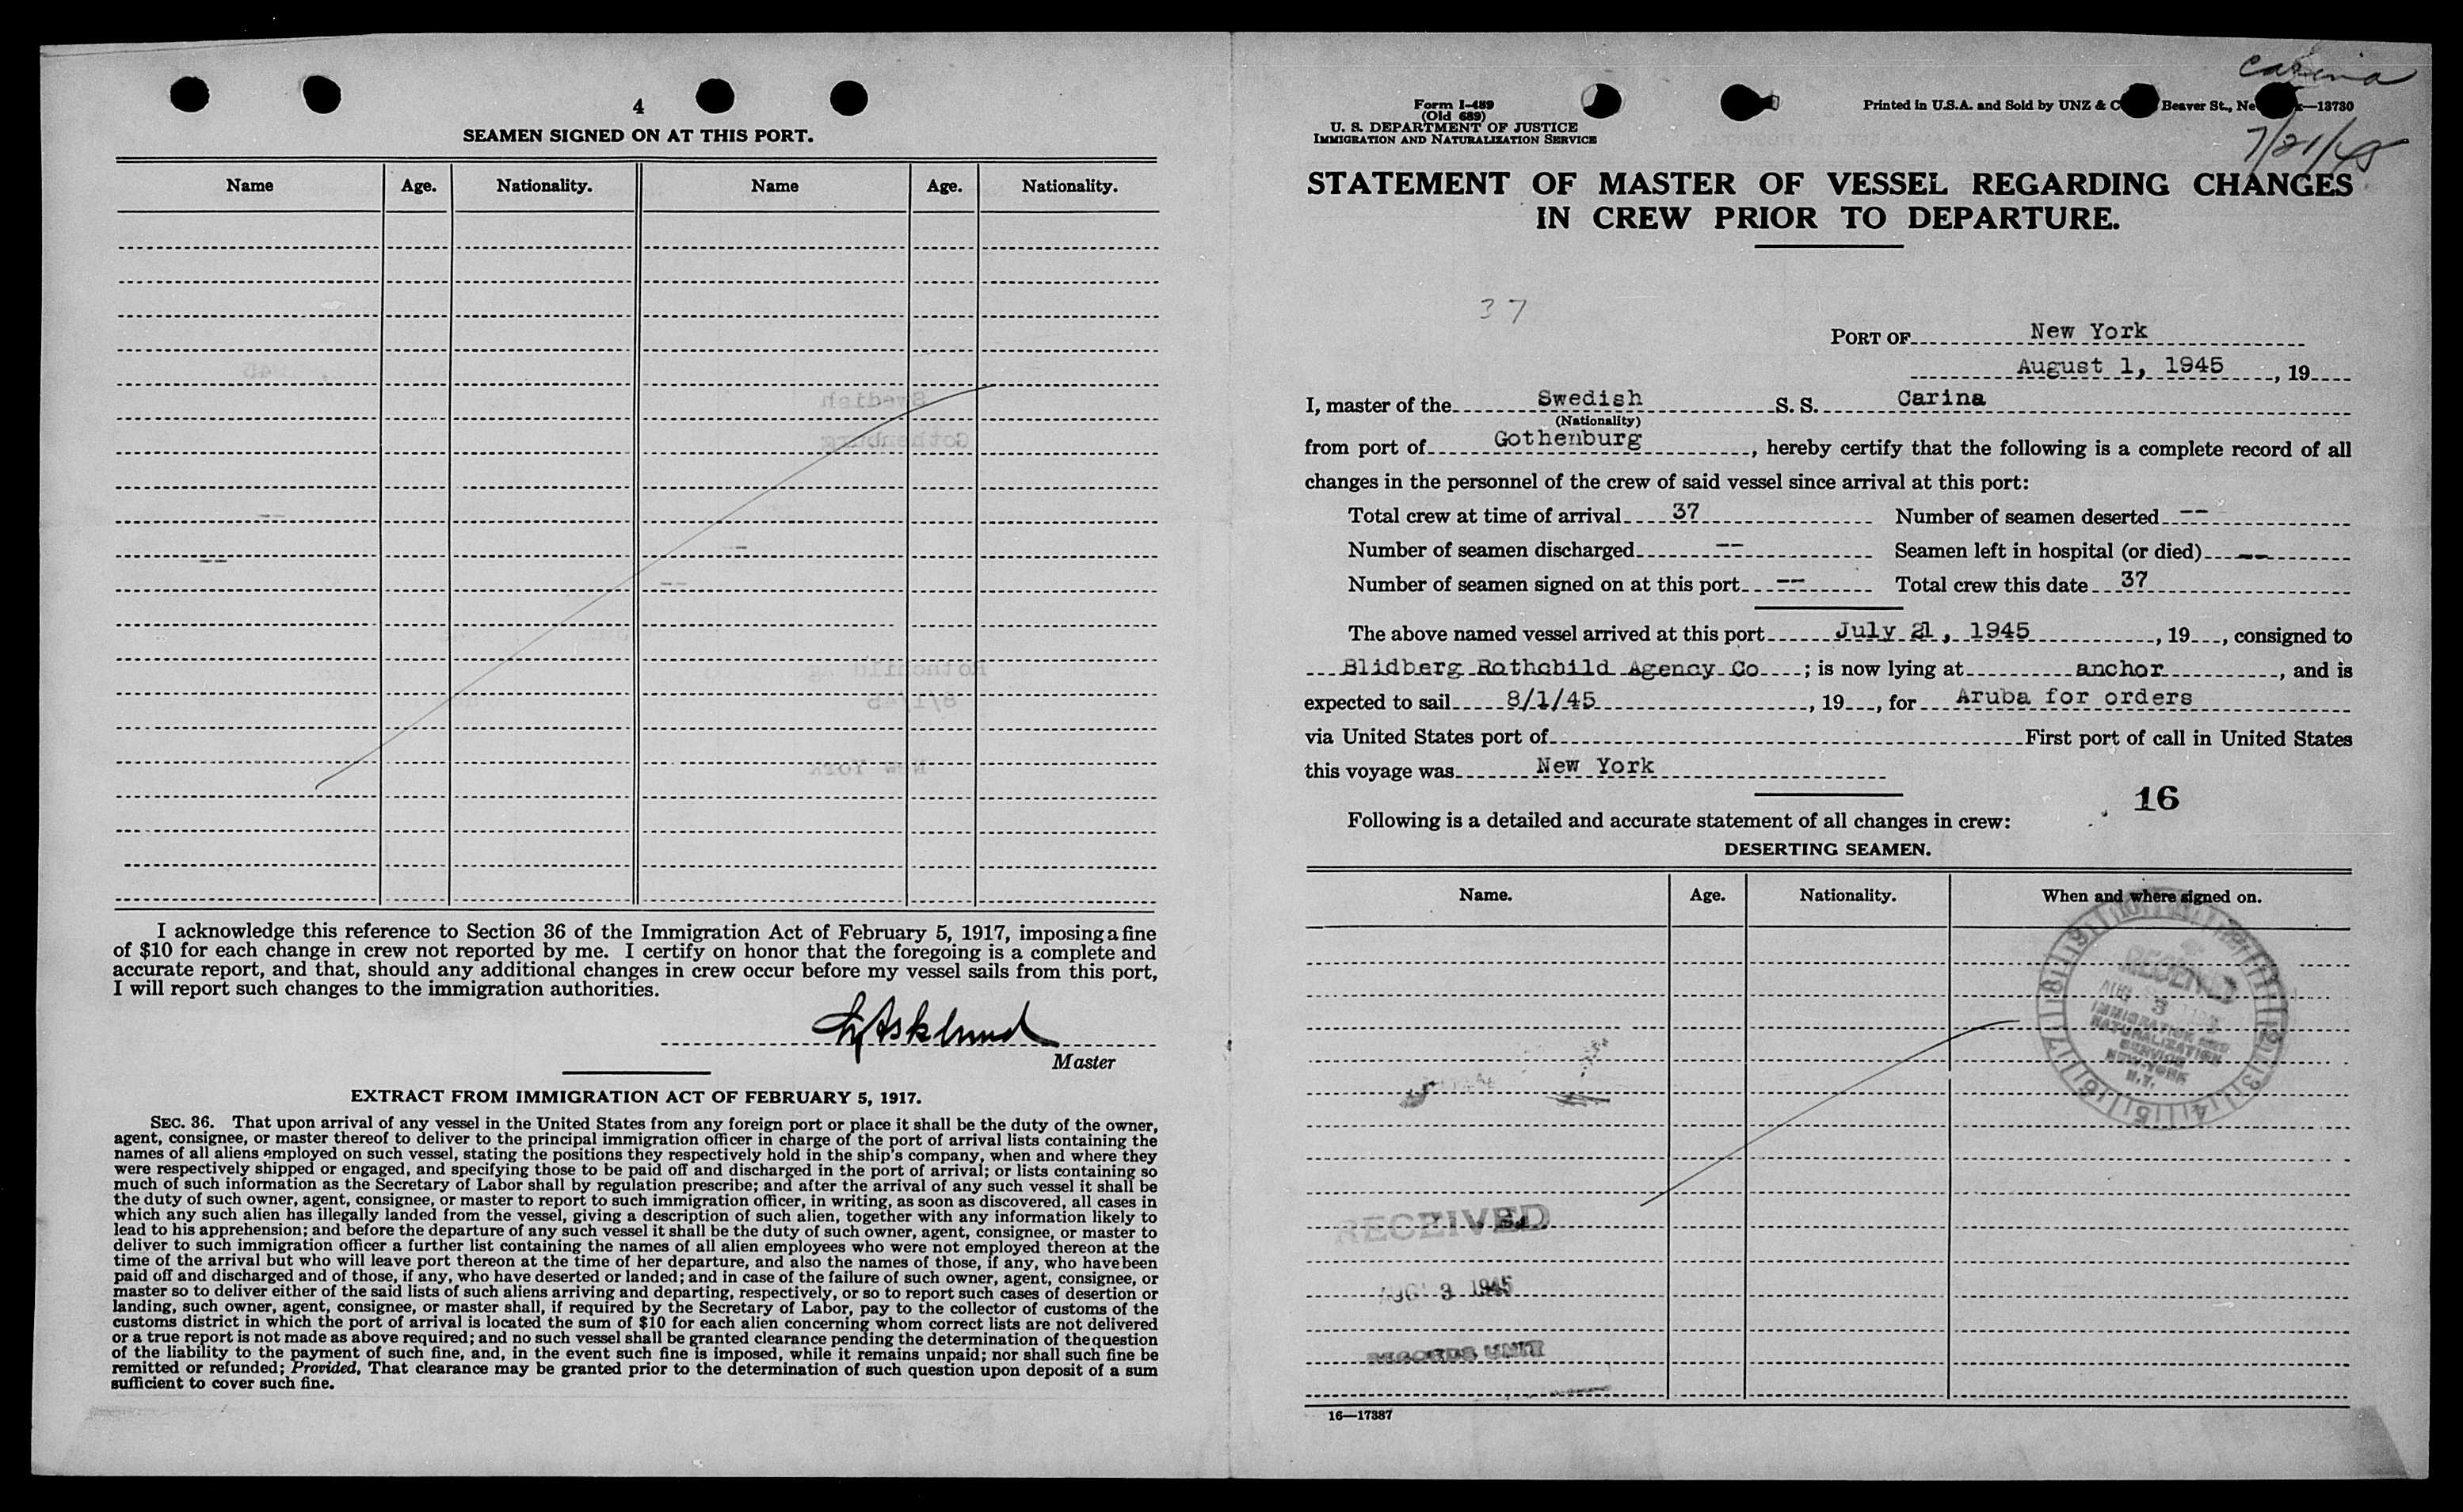 4
SEAMEN SIGNED ON AT THIS PORT.
Name Age. Nationality. Name Age. Nationality.
I acknowledge this reference to Section 36 of the Immigration Act of February 5, 1917, imposing a fine
of $10 for each change in crew not reported by me. I certify on honor that the foregoing is a complete and
accurate report, and that, should any additional changes in crew occur before my vessel sails from this port,
I will report such changes to the immigration authorities.
Asklund
Master
EXTRACT FROM IMMIGRATION ACT OF FEBRUARY 5, 1917.
SEC. 36. That upon arrival of any vessel in the United States from any foreign port or place it shall be the duty of the owner,
agent, consignee, or master thereof to deliver to the principal immigration officer in charge of the port of arrival lists containing the
names of all aliens employed on such vessel, stating the positions they respectively hold in the ship's company, when and where they
were respectively shipped or engaged, and specifying those to be paid off and discharged in the port of arrival; or lists containing so
much of such information as the Secretary of Labor shall by regulation prescribe; and after the arrival of any such vessel it shall be
the duty of such owner, agent, consignee, or master to report to such immigration officer, in writing, as soon as discovered, all cases in
which any such alien has illegally landed from the vessel, giving a description of such alien, together with any information likely to
lead to his apprehension; and before the departure of any such vessel it shall be the duty of such owner, agent, consignee, or master to
deliver to such immigration officer a further list containing the names of all alien employees who were not employed thereon at the
time of the arrival but who will leave port thereon at the time of her departure, and also the names of those, if any, who have been
paid off and discharged and of those, if any, who have deserted or landed; and in case of the failure of such owner, agent, consignee, or
master so to deliver either of the said lists of such aliens arriving and departing, respectively, or so to report such cases of desertion or
landing, such owner, agent, consignee, or master shall, if required by the Secretary of Labor, pay to the collector of customs of the
customs district in which the port of arrival is located the sum of $10 for each alien concerning whom correct lists are not delivered
or a true report is not made as above required; and no such vessel shall be granted clearance pending the determination of the question
of the liability to the payment of such fine, and, in the event such fine is imposed, while it remains unpaid; nor shall such fine be
remitted or refunded; Provided, That clearance may be granted prior to the determination of such question upon deposit of a sum
sufficient to cover such fine.
Carina
Form I-489
(Old 689)
U. S. DEPARTMENT OF JUSTICE
IMMIGRATION AND NATURALIZATION SERVICE
Printed in U.S.A. and Sold by UNZ & C Beaver St., Ne —13730
7/21/45
STATEMENT OF MASTER OF VESSEL REGARDING CHANGES
IN CREW PRIOR TO DEPARTURE.
37
PORT OF New York
August 1, 1945, 19
I, master of the Swedish S. S. Carina
(Nationality)
from port of Gothenburg, hereby certify that the following is a complete record of all
changes in the personnel of the crew of said vessel since arrival at this port:
Total crew at time of arrival 37 Number of seamen deserted --
Number of seamen discharged -- Seamen left in hospital (or died) --
Number of seamen signed on at this port -- Total crew this date 37
The above named vessel arrived at this port July 21, 1945, 19, consigned to
Blidberg Rothchild Agency Co; is now lying at anchor, and is
expected to sail 8/1/45, 19, for Aruba for orders
via United States port of First port of call in United States
this voyage was New York
16
Following is a detailed and accurate statement of all changes in crew:
DESERTING SEAMEN.
Name. Age. Nationality. When and where signed on.
RECEIVED
AUG 3
IMMIGRATION AND
NATURALIZATION
SERVICE
NEW YORK
N.Y.
RECEIVED
AUG 3 1945
RECORDS UNIT
16—17387